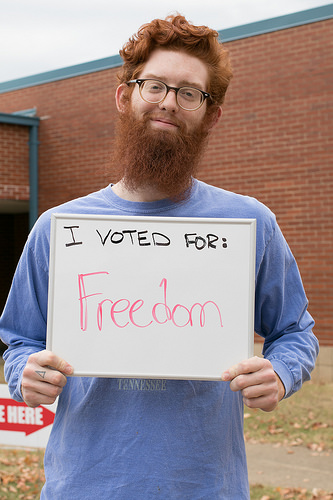 I VOTED FOR:
Freedom
TENNESSEE
E HERE